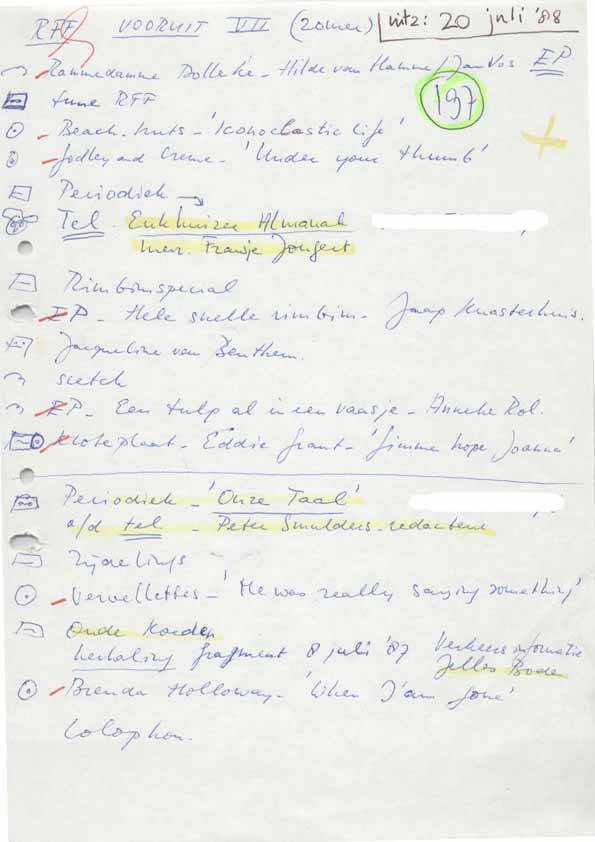 RFF VOORUIT VII (zomer) uitz: 20 juli '88
Rammedamme Bolleke - Hilde van Hamme / Jan Vos EP
tune RFF
197
Beach. nuts - 'Iconoclastic life'
Godley and Creme - 'Under your thumb'
Periodiek →
Tel. Enkhuizer Almanak
mevr. Fransje Jongert
Rimbimspecial
EP - Hele snelle rimbim - Jaap Knasterhuis.
Jacqueline van Benthem.
scetch
EP - Een tulp al in een vaasje - Anneke Rol.
Kloteplaat - Eddie Grant - 'Gimme hope Joanna'
Periodiek - 'Onze Taal'
a/d tel - Peter Smulders - redacteur
Zijdelings
Vervellettes - 'He was really saying something'
Oude Koeden
herhaling fragment 8 juli '87 Verkeersinformatie
Jelles Bode
Brenda Holloway - 'When I'am gone'
Colophon.